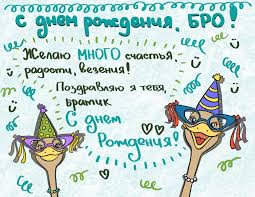 С днём рождения, БРО!
Желаю МНОГО счастья,
радости, везения!
Поздравляю я тебя,
братик
С днём
Рождения!